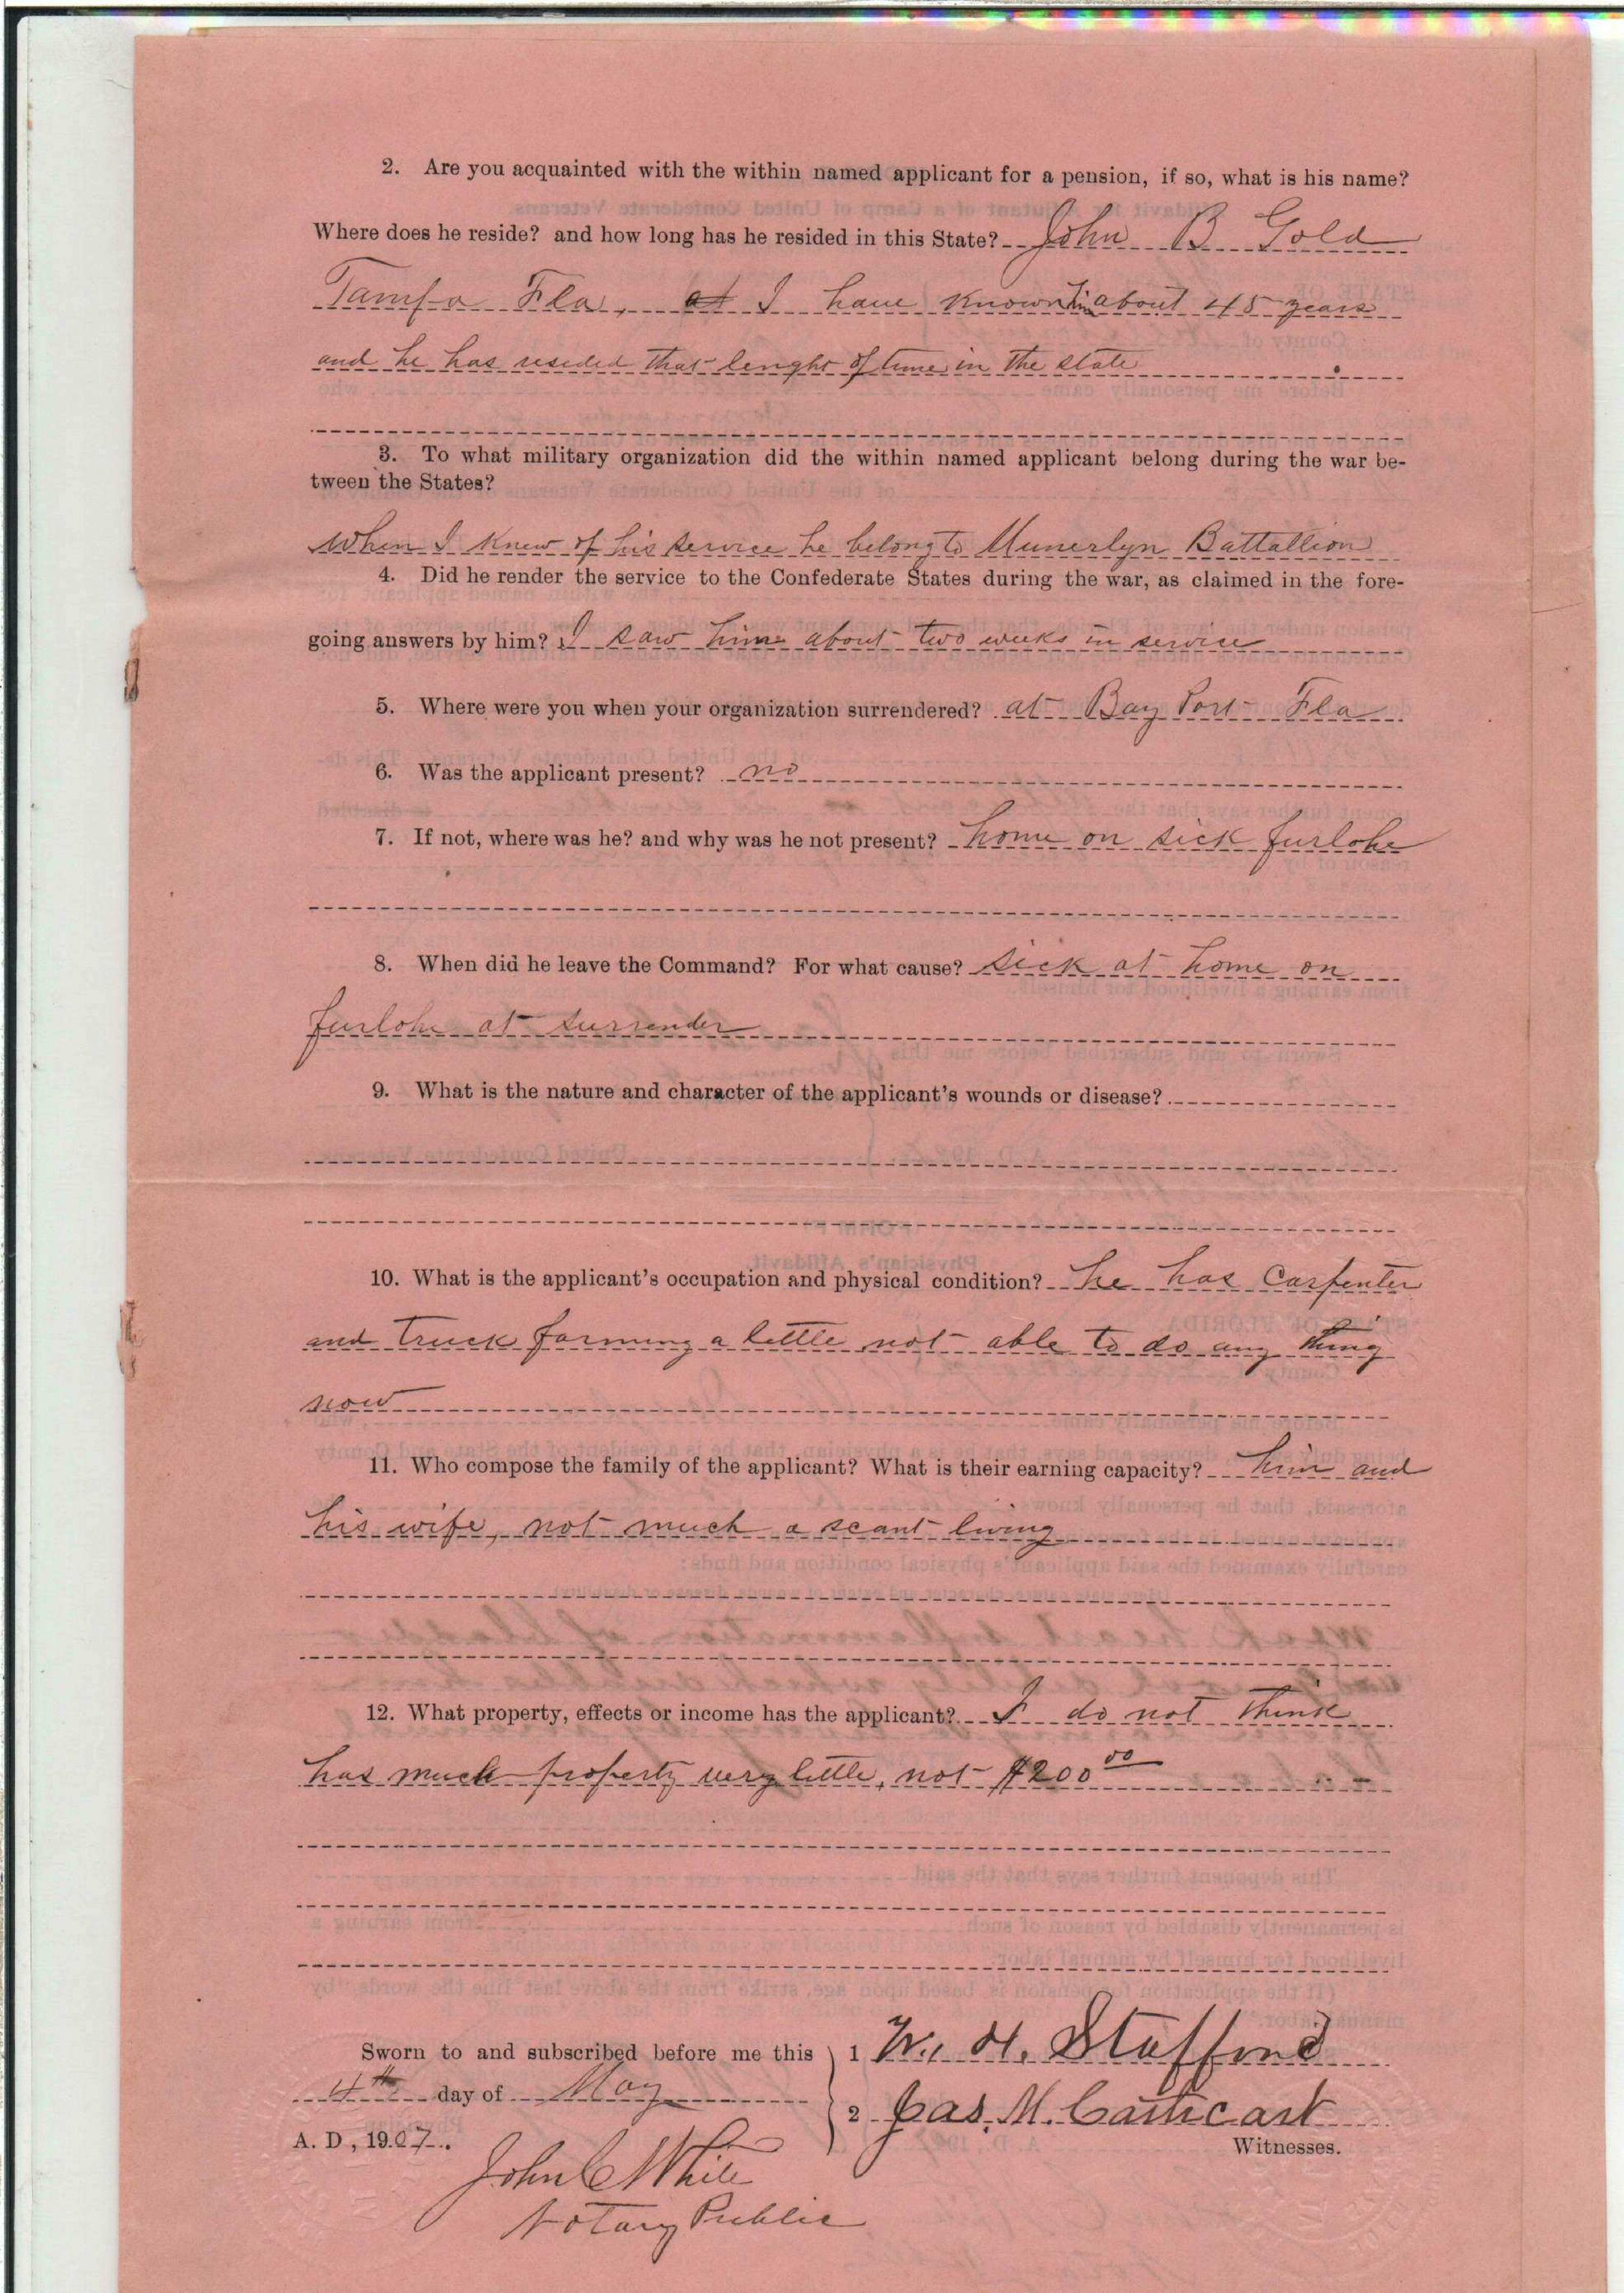 2. Are you acquainted with the within named applicant for a pension, if so, what is his name?
Where does he reside? and how long has he resided in this State? John B Gold
Tampa Fla, at I have known him about 45 years
and he has resided that lenght of time in the state
3. To what military organization did the within named applicant belong during the war be-
tween the States?
When I Knew of his service he belong to Munerlyn Battallion
4. Did he render the service to the Confederate States during the war, as claimed in the fore-
going answers by him? I saw him about two weeks in service
5. Where were you when your organization surrendered? at Bay Port Fla
6. Was the applicant present? no
7. If not, where was he? and why was he not present? home on sick furlohe
8. When did he leave the Command? For what cause? Sick at home on
furlohe at surrender
9. What is the nature and character of the applicant's wounds or disease?
10. What is the applicant's occupation and physical condition? he has Carpenter
and truck farming a little not able to do any thing
now
11. Who compose the family of the applicant? What is their earning capacity? him and
his wife, not much a scant living
12. What property, effects or income has the applicant? I do not think
has much property very little, not $200 00
Sworn to and subscribed before me this 1 W. H. Stafford
4th day of May
2 Jas. M. Cathcart
A. D, 1907.
Witnesses.
John C White
Notary Public